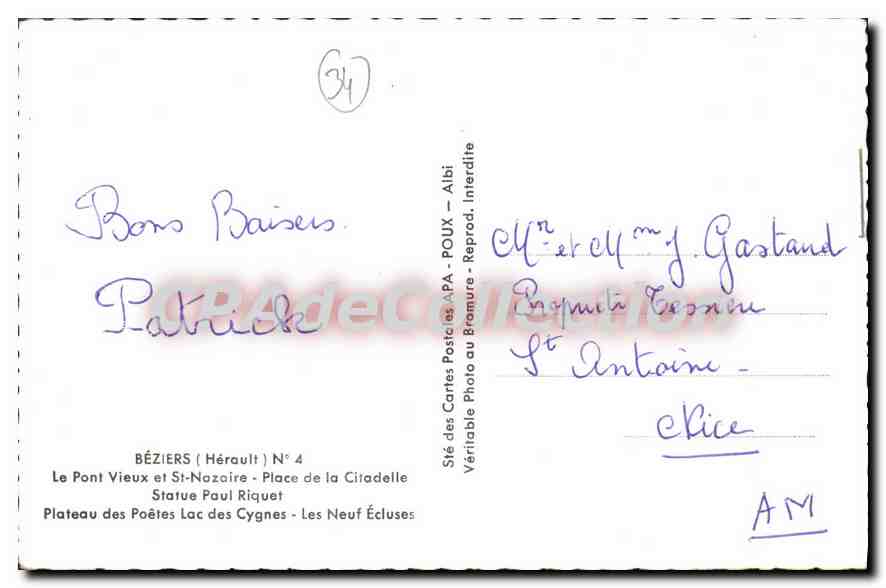 34
Bons Baisers.
Patrick
CPAdeCollection
BÉZIERS ( Hérault ) N° 4
Le Pont Vieux et St-Nazaire - Place de la Citadelle
Statue Paul Riquet
Plateau des Poêtes Lac des Cygnes - Les Neuf Écluses
Sté des Cartes Postales APA - POUX — Albi
Véritable Photo au Bromure - Reprod. Interdite
Mr et Mm J. Gastaud
Propriété Tessiere
St Antoine -
Nice
AM